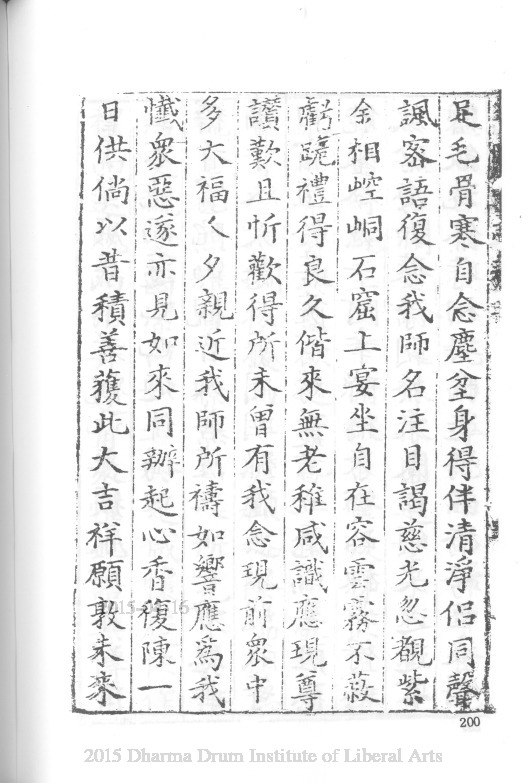 足毛骨寒自念塵坌身得伴清淨侶同聲
諷密語復念我師名注目謁慈光忽覩紫
金相崆峒石窟上宴坐自在容雲霧不蔽
虧跪禮得良久偕來無老稚咸識應現尊
讚歎且忻歡得所未曾有我念現前衆中
多大福人夕親近我師所禱如響應為我
懺衆惡遂亦見如來同辦起心香復陳一
日供倘以昔積善獲此大吉祥願敦未來
200
2015 Dharma Drum Institute of Liberal Arts